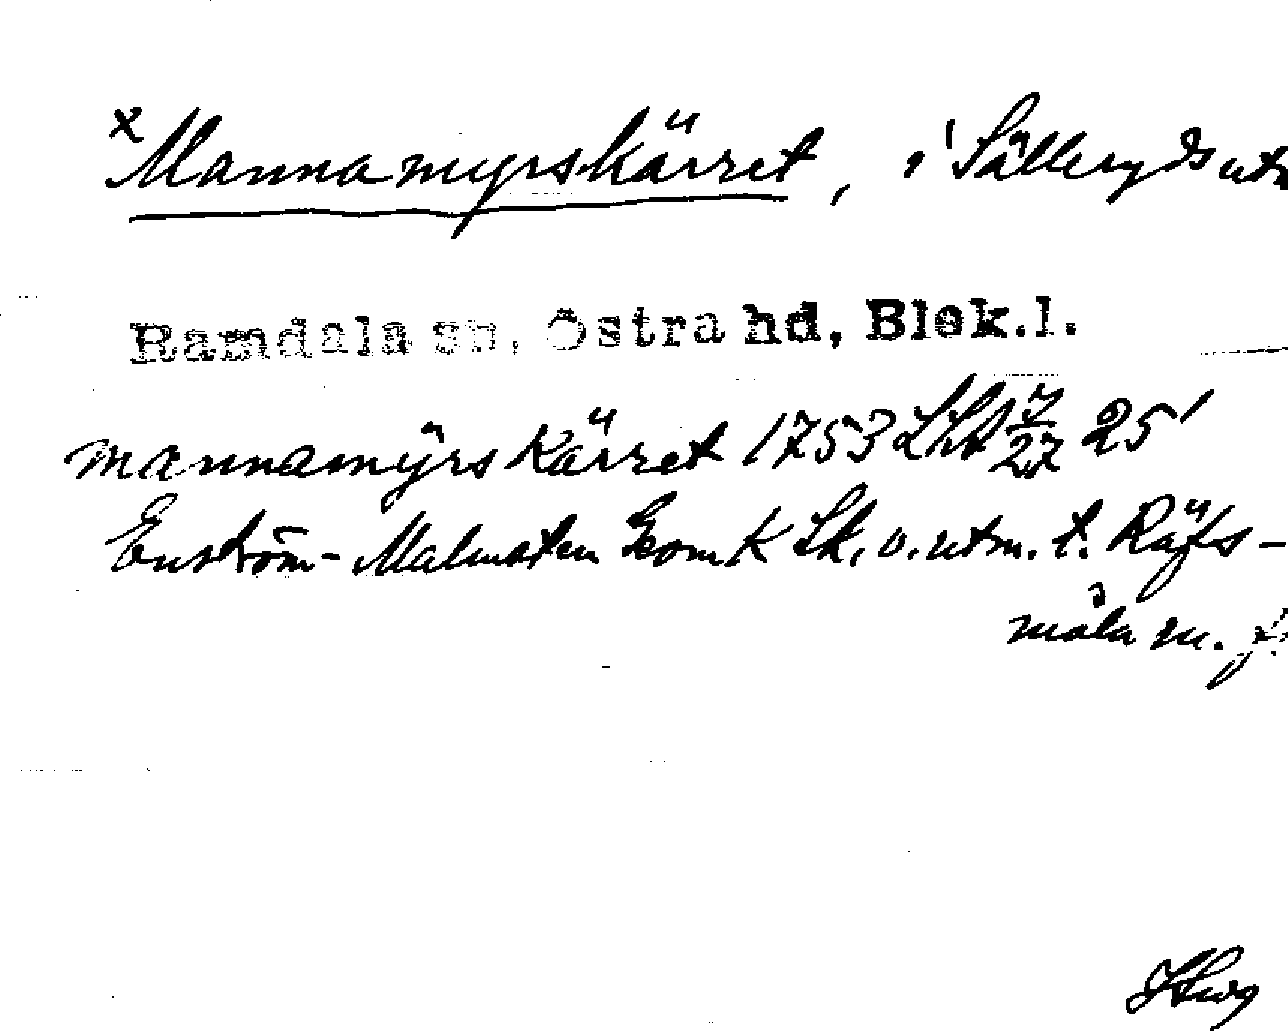 x Mannamyrskärret, i Sälleryds utm
Ramdala sn, Östra hd, Blek.l.
mannamyrs kärret 1753 LSA 7/27 25'
Enström-Malmsten GeomK Sk. o. utm. t. Räfs-
måla m. fl.